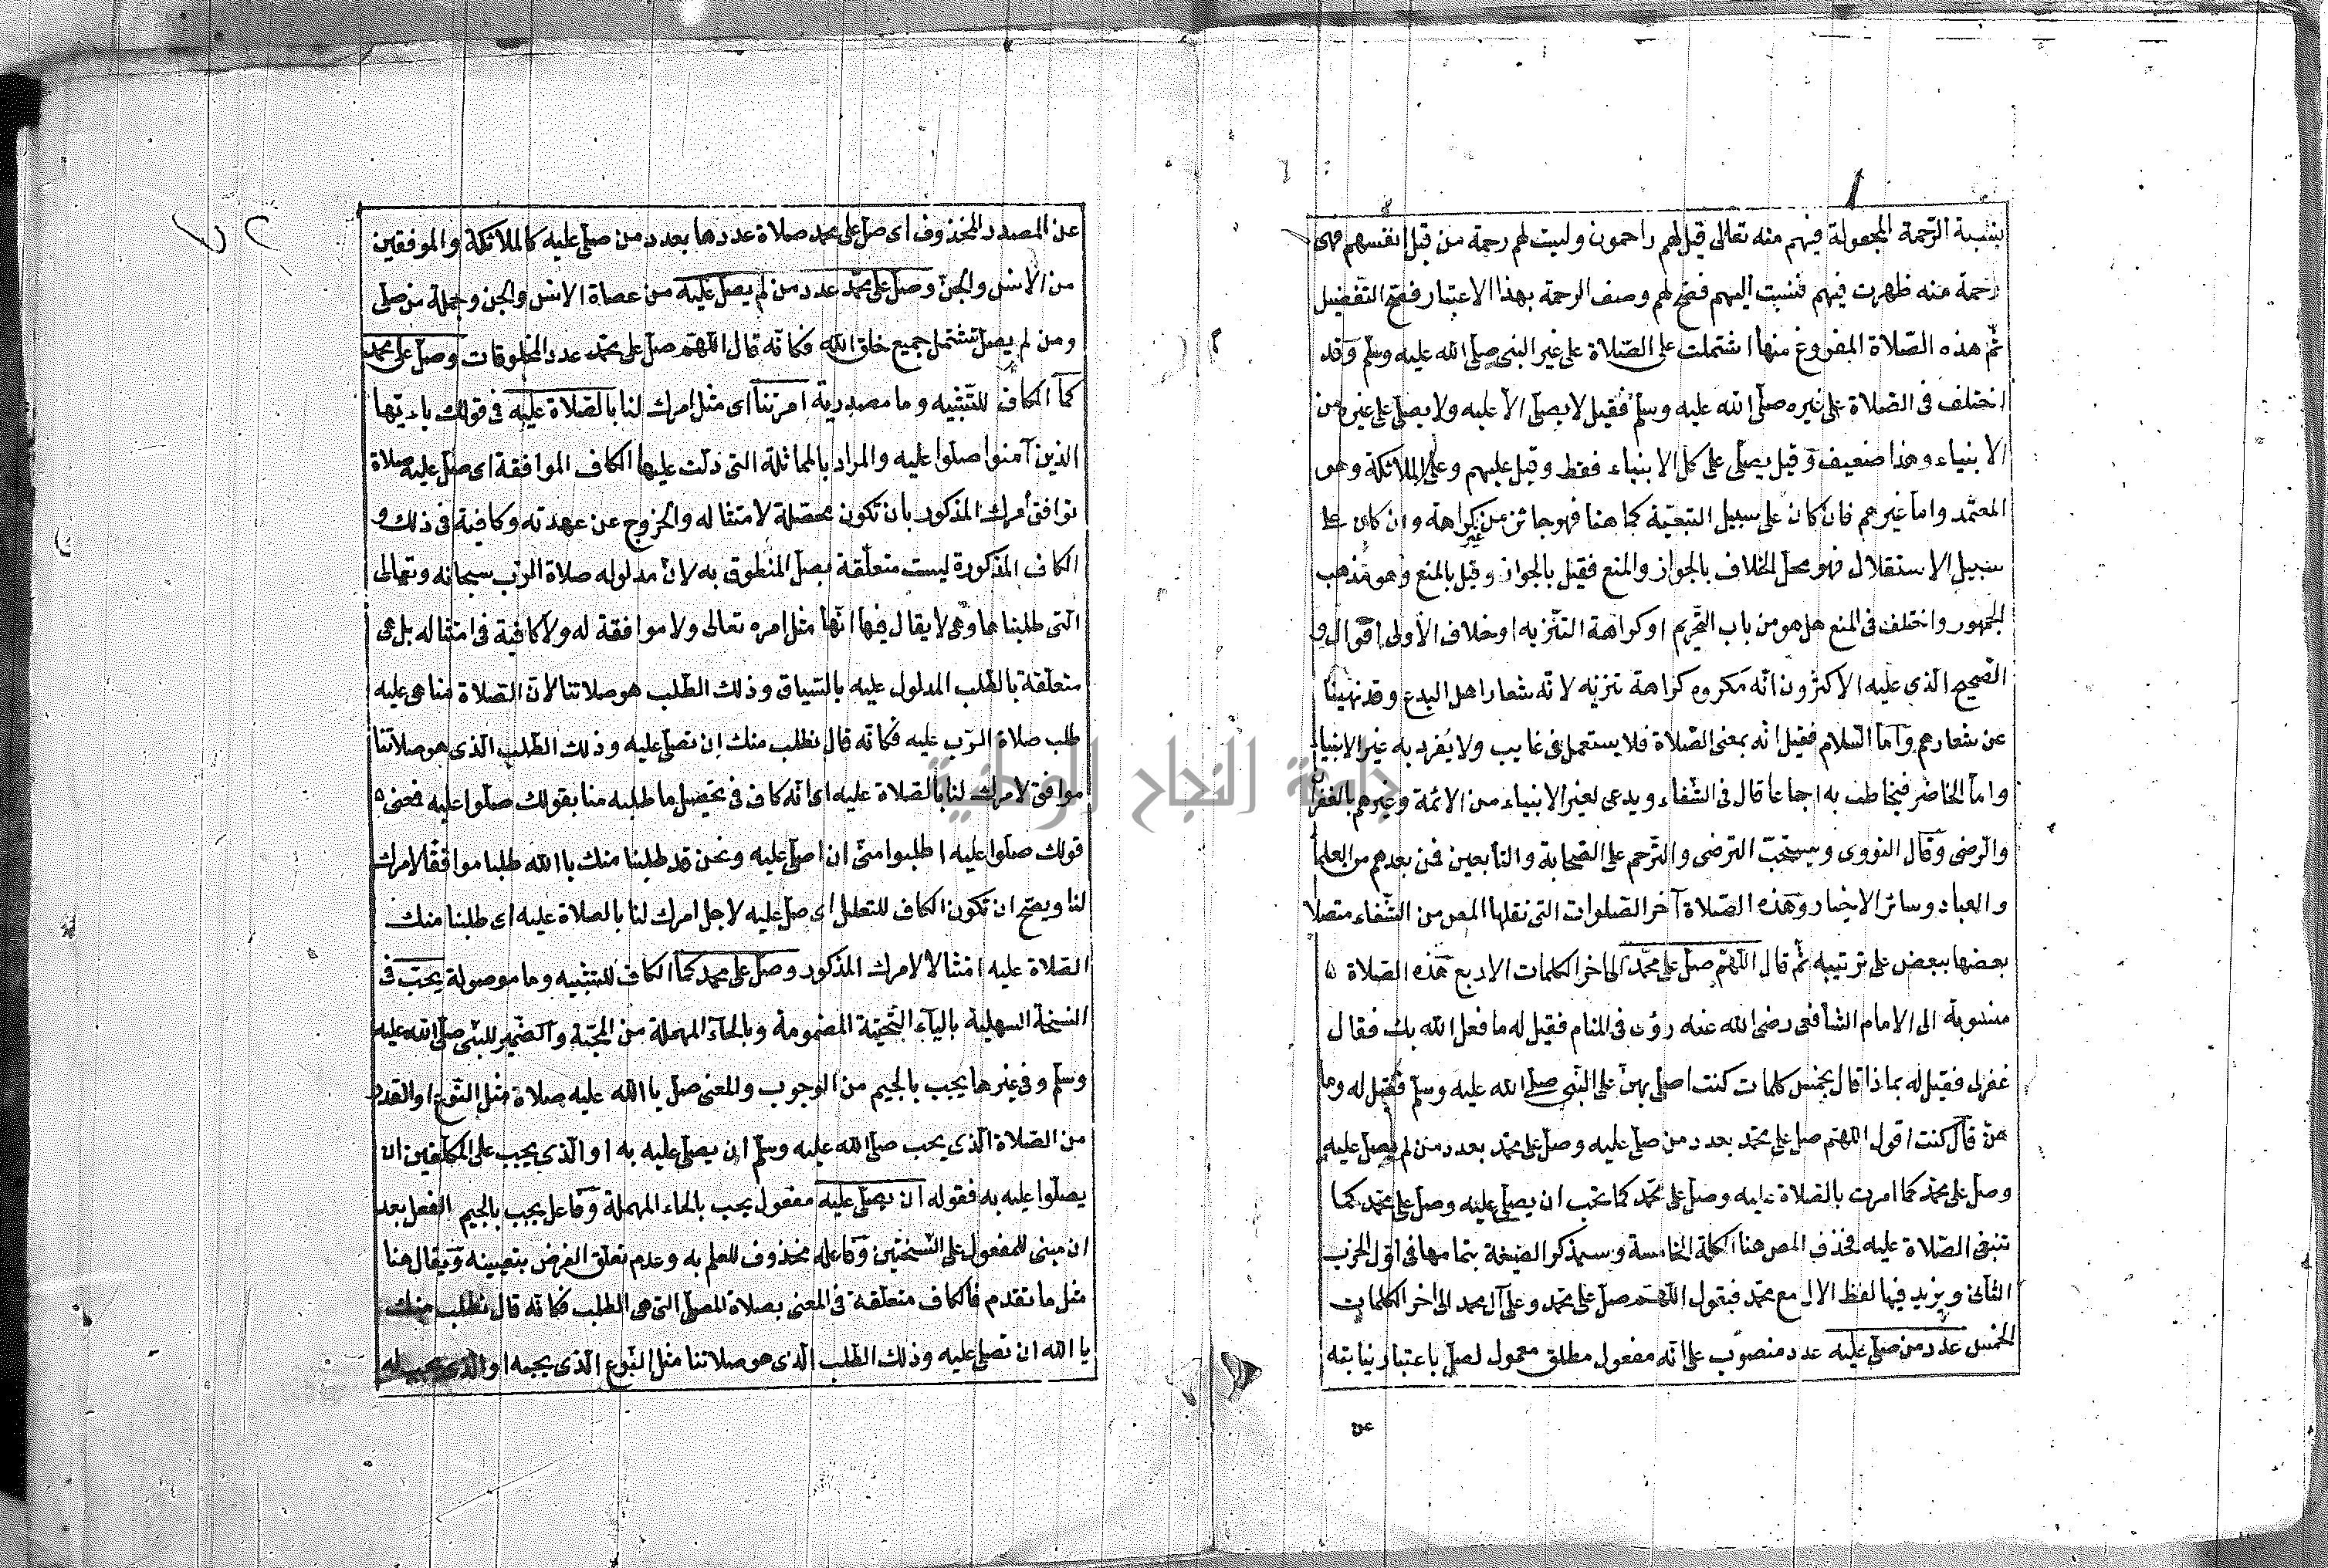 بنسبة الرّحمة المجعولة فيهم منه تعالى قيل لهم راحمون وليست لهم رحمة من قبل انفسهم فهى
رحمة منه ظهرت فيهم فنسبت اليهم فصحّ لهم وصف الرحمة بهذا الاعتبار فصحّ التفضيل
ثمّ هذه الصّلاة المفروغ منها اشتملت على الصّلاة على غير النبى صلى الله عليه وسلّم وقد
اختلف فى الصّلاة على غيره صلى الله عليه وسلّم فقيل لا يصلّى الا عليه ولا يصلّى على غيره من
الانبياء وهذا ضعيف وقيل يصلّى على كل الانبياء فقط وقيل عليهم وعلى الملائكة وهو
المعتمد واما غيرهم فان كان على سبيل التبعيّة كما هنا فهو جائز من غير كراهة وان كان على
سبيل الاستقلال فهو محلّ الخلاف بالجواز والمنع فقيل بالجواز وقيل بالمنع وهو مذهب
الجمهور واختلف فى المنع هل هو من باب التّحريم او كراهة التنزيه او خلاف الأولى اقوال و
الصّحيح الّذى عليه الاكثرون انّه مكروه كراهة تنزيه لانّه شعار اهل البدع وقد نهينا
عن شعارهم وامّا السّلام فقيل انّه بمعنى الصّلاة فلا يستعمل فى غايب ولا يُفرد به غير الانبياء
وامّا الحاضر فيخاطب به اجماعا قال فى الشّفاء ويدعى لغير الانبياء من الائمة وغيرهم بالغفران
والرّضى وقال النووى ويستحبّ الترضى والترّحم على الصّحابة والتابعين فمن بعدهم من العلماء
والعباد وسائر الاخيار وهذه الصّلاة آخر الصّلوات التى نقلها المص من الشّفاء متصلا
بعضها ببعض على ترتيبه ثمّ قال اللّهمّ صلّ على محمّد الى اخر الكلمات الاربع هذه الصّلاة
منسوبة الى الامام الشافعى رضى الله عنه رؤى فى المنام فقيل له ما فعل الله بك فقال
غفرلى فقيل له بماذا قال بخمس كلمات كنت اصلى بهنّ على النّبى صلى الله عليه وسلّم فقيل له وما
هنّ قال كنت اقول اللّهمّ صلّ على محمّد بعدد من صلّى عليه وصلّ على محمّد بعدد من لم يصلّ عليه
وصلّ على محمّد كما امرت بالصّلاة عليه وصلّ على محمّد كما تحب ان يصلّى عليه وصلّ على محمّد كما
تنبغى الصّلاة عليه فحذف المص هنا الكلمة الخامسة وسيذكر الصّيغة بتمامها فى اوّل الحزب
الثّانى ويزيد فيها لفظ الال مع محمّد فيقول اللّهمّ صلّ على محمّد وعلى آل محمد الى اخر الكلمات
الخمس عدد من صلّى عليه عدد منصوب على انّه مفعول مطلق معمول لصلّ باعتبار نيابته
عن
عن المصدر المحذوف اى صلّ على محمّد صلاة عددها بعدد من صلّى عليه كالملائكة والموفقين
من الانس والجنّ وصلّ على محمّد عدد من لم يصلّ عليه من عصاة الانس والجن وجملة من صلّى
ومن لم يصلّ تشتمل جميع خلق الله فكانّه قال اللّهمّ صلّ على محمّد عدد المخلوقات وصلّ على محمد
كما الكاف للتّشبيه وما مصدرية امرتنا اى مثل امرك لنا بالصّلاة عليه فى قولك ياءيّها
الذين آمنوا صلّوا عليه والمراد بالمماثلة التى دلّت عليها الكاف الموافقة اى صلّ عليه صلاة
توافق أمرك المذكور بان تكون محصّلة لامتثاله والخروج عن عهدته وكافية فى ذلك و
الكاف المذكورة ليست متعلّقة بصلّ المنطوق به لانّ مدلوله صلاة الرّب سبحانه وتعالى
الّتى طلبناها وهى لا يقال فيها انّها مثل امره تعالى ولا موافقة له ولا كافية فى امتثاله بل هى
متعلّقة بالطّلب المدلول عليه بالسّياق وذلك الطّلب هو صلاتنا لانّ الصّلاة منا هى عليه
طلب صلاة الرّب عليه فكانّه قال نطلب منك ان تصلّى عليه وذلك الطّلب الّذى هو صلاتنا
موافق لامرك لنا بالصّلاة عليه اى انّه كاف فى تحصيل ما طلبه منا بقولك صلّوا عليه فمعنى
قولك صلّوا عليه اطلبوا منّى ان اصلّى عليه ونحن قد طلبنا منك يا الله طلبا موافقا لامرك
لنا ويصحّ ان تكون الكاف للتعليل اى صلّ عليه لاجل امرك لنا بالصلاة عليه اى طلبنا منك
الصّلاة عليه امتثالا لامرك المذكور وصلّ على محمد كما الكاف للتشبيه وما موصولة يحبّ فى
النسخة السهلية بالياء التّحتيّة المضمومة وبالحاء المهملة من المحبّة والضّمير للنّبى صلّى الله عليه
وسلّم وفى غيرها يجب بالجيم من الوجوب والمعنى صلّ يا الله عليه صلاة مثل النّوع او القدر
من الصّلاة الّذى يحب صلّى الله عليه وسلّم ان يصلّى عليه به او الّذى يجب على المكلّفين ان
يصلّوا عليه به فقوله ان يصلّى عليه مفعول يحب بالحاء المهملة وفاعل يجب بالجيم الفعل بعد
ان مبنى للمفعول على النّسختين وفاعله محذوف للعلم به وعدم تعلّق الغرض بتعيينه ويقال هنا
مثل ما تقدم فالكاف متعلّقة فى المعنى بصلاة المصلّى التى هى الطلب فكانّه قال نطلب منك
يا الله ان تصلّى عليه وذلك الطّلب الّذى هو صلاتنا مثل النّوع الّذى يحبه او الّذى يجب له
جامعة النجاح الوطنية